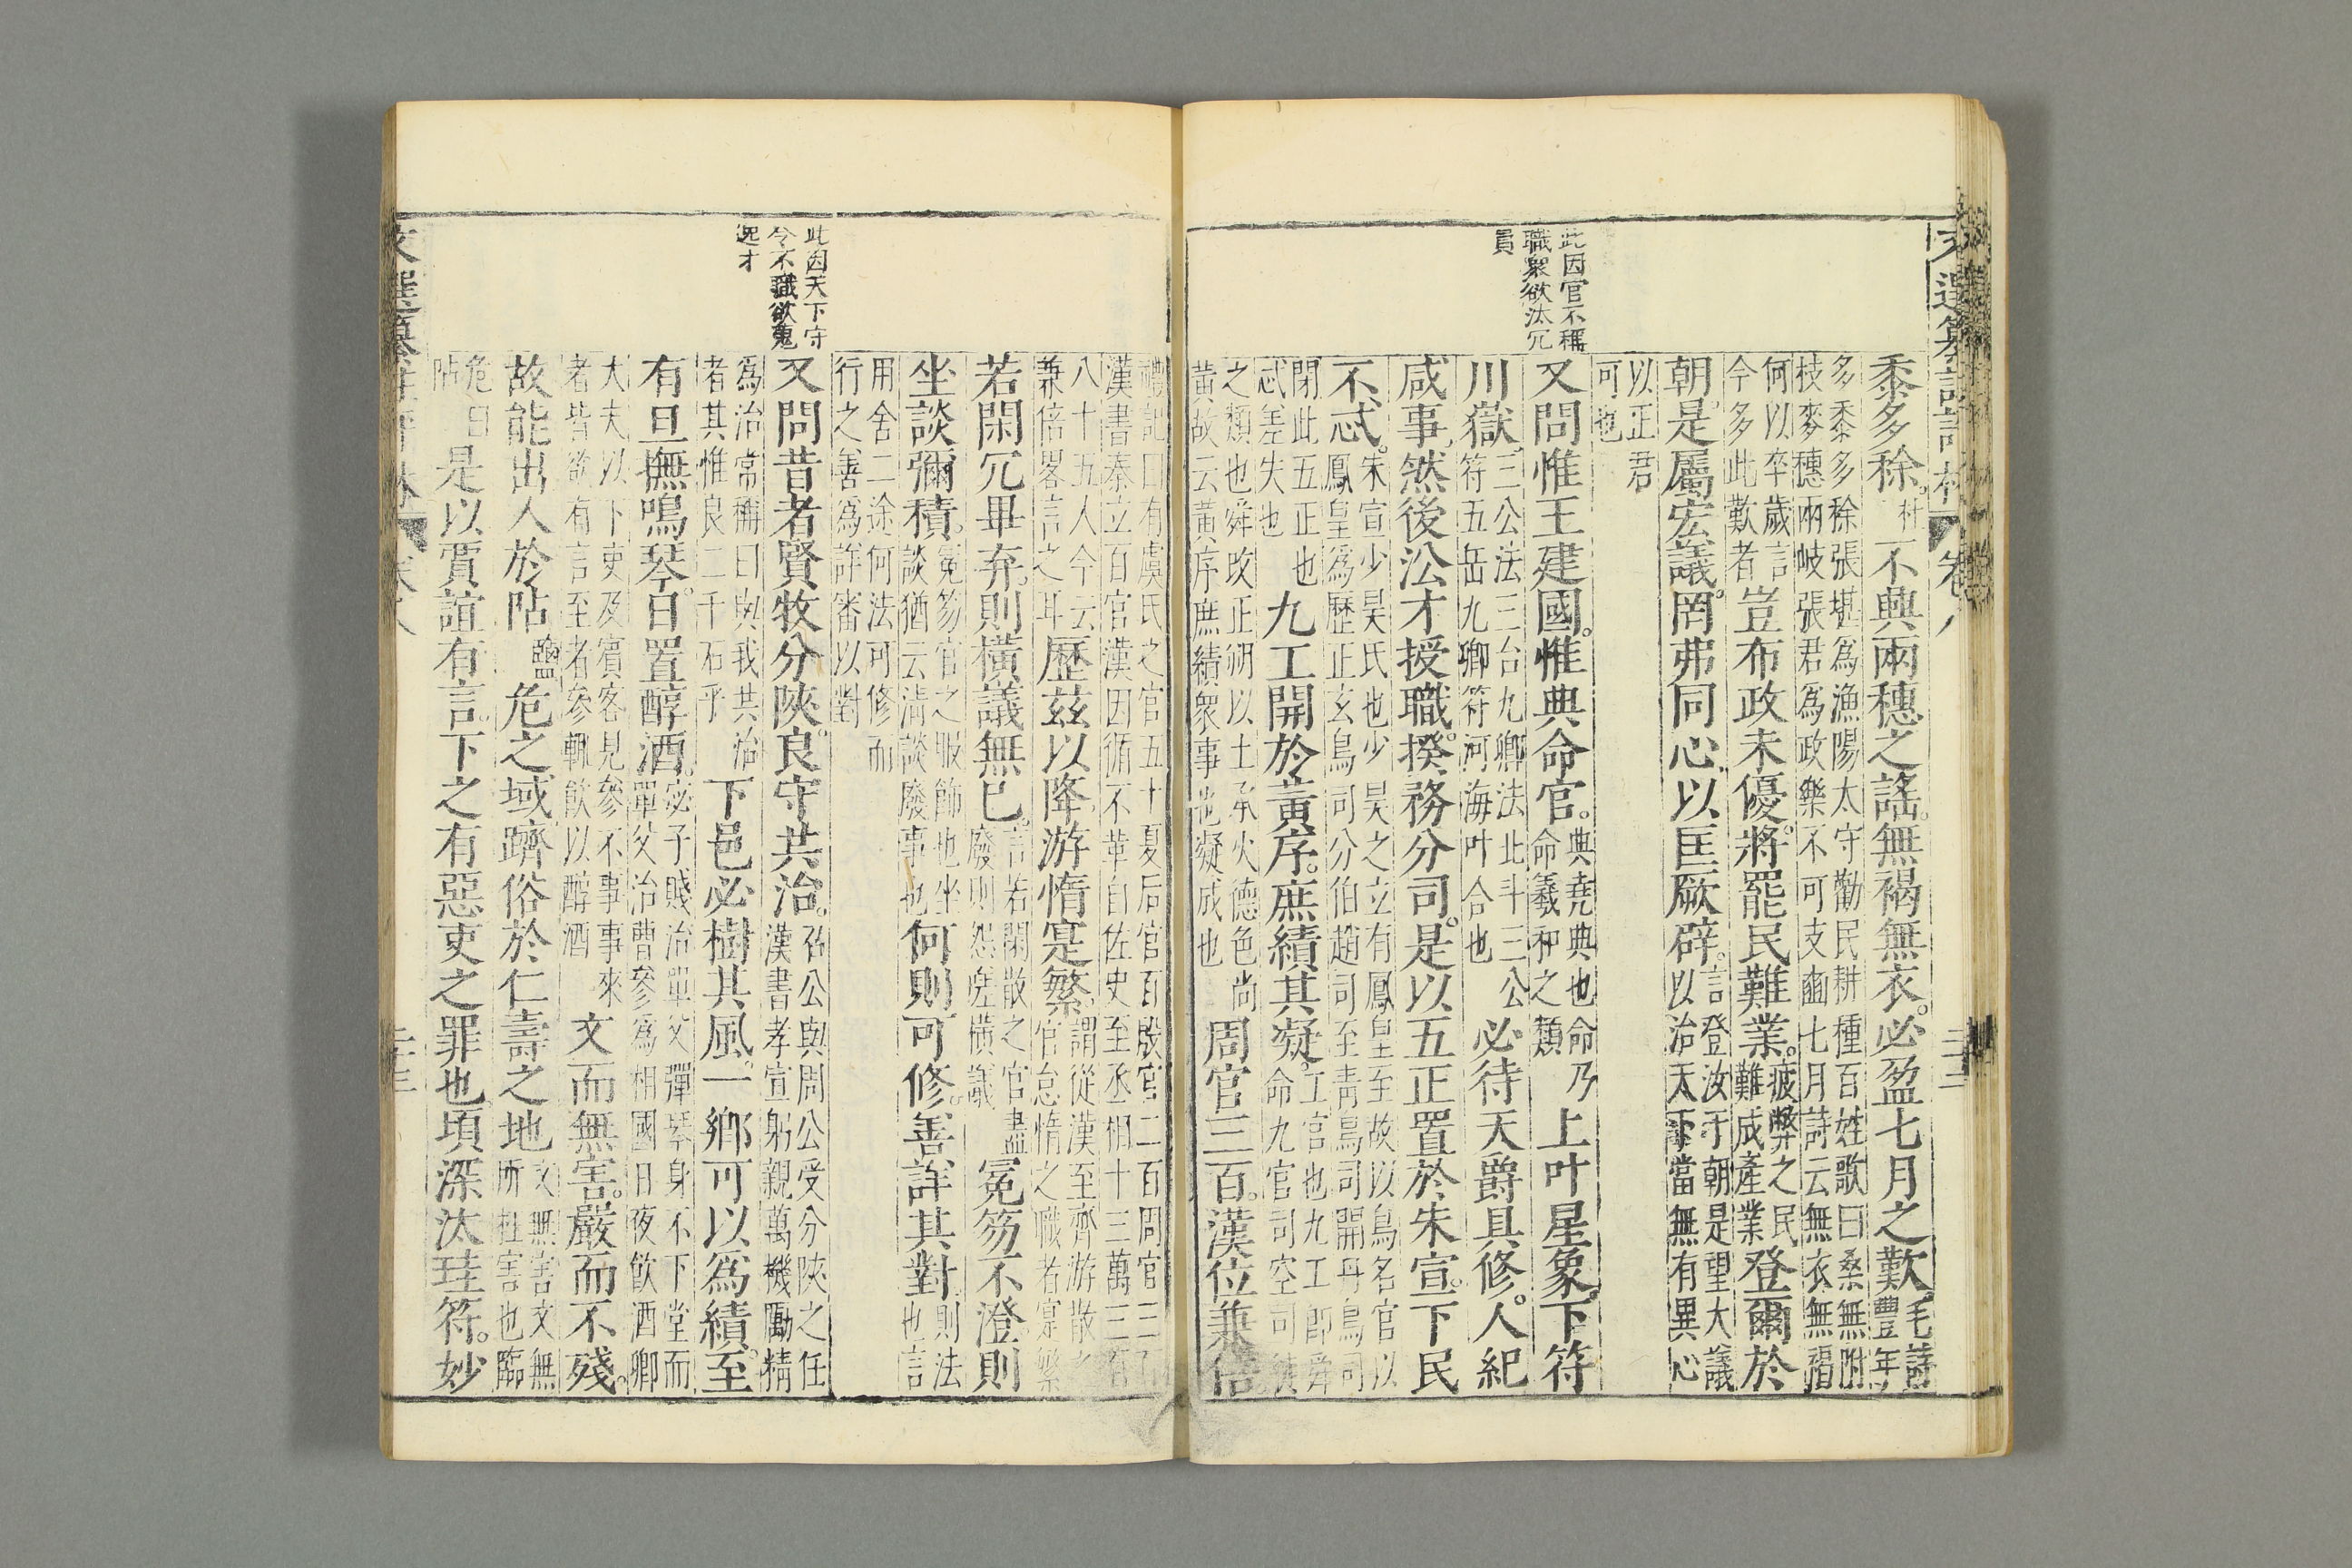 此因官不稱
職衆欲汰冗
員
黍多稌杜不興兩穗之謠無褐無衣必盈七月之歎毛詩豐年
多黍多稌張堪爲漁陽太守勸民耕種百姓歌曰桑無附
枝麥穗兩岐張君爲政樂不可支豳七月詩云無衣無褐
何以卒歲言
今多此歎者豈布政未優將罷民難業疲弊之民難成產業登爾於
朝是屬宏議罔弗同心以匡厥辟言登汝于朝是望大議以治天下當無有異心
以正君
可也
又問惟王建國惟典命官典堯典也命乃命羲和之類上叶星象下符
川嶽三公法三台九卿法北斗三公符五岳九卿符河海叶合也必待天爵具修人紀
咸事然後沿才授職揆務分司是以五正置於朱宣下民
不忒宋宣少昊氏也少昊之立有鳳皇至故以鳥名官以
鳳皇爲歷正玄鳥司分伯趙司至青鳥司開丹鳥司
閉此五正也
忒差失也九工開於黃序庶績其凝工官也九工即舜命九官司空司徒
之類也舜改正朔以土承火德色尚
黃故云黃序庶績衆事也凝成也周官三百漢位兼倍
此因天下守
令不職欲蒐
逸才
禮記曰有虞氏之官五十夏后官百殷官二百周官三百
漢書秦立百官漢因循不革自佐史至丞相十三萬三百
八十五人今云
兼倍畧言之耳歷茲以降游惰寔繁謂從漢至齊游散之官怠惰之職者寔繁
若閑冗畢弃則橫議無已言若閑散之官盡廢則怨嗟橫議冕笏不澄則
坐談彌積冕笏官之服飾也坐談猶云清談廢事也何則可修善詳其對則法也言
用舍二途何法可修而
行之善爲詳審以對
又問昔者賢牧分陝良守共治召公與周公受分陝之任漢書孝宣躬親萬機勵精
爲治常稱曰與我共治
者其惟良二千石乎下邑必樹其風一鄉可以爲績至
有旦撫鳴琴日置醇酒宓子賤治單父彈琴身不下堂而
單父治曹參爲相國日夜飲酒卿
大夫以下吏及賓客見參不事事來
者皆欲有言至者參輒飲以醇酒文而無害嚴而不殘
故能出人於阽鹽危之域躋俗於仁壽之地文無害文無所枉害也臨
危曰
阽是以賈誼有言下之有惡吏之罪也頃深汰珪符妙